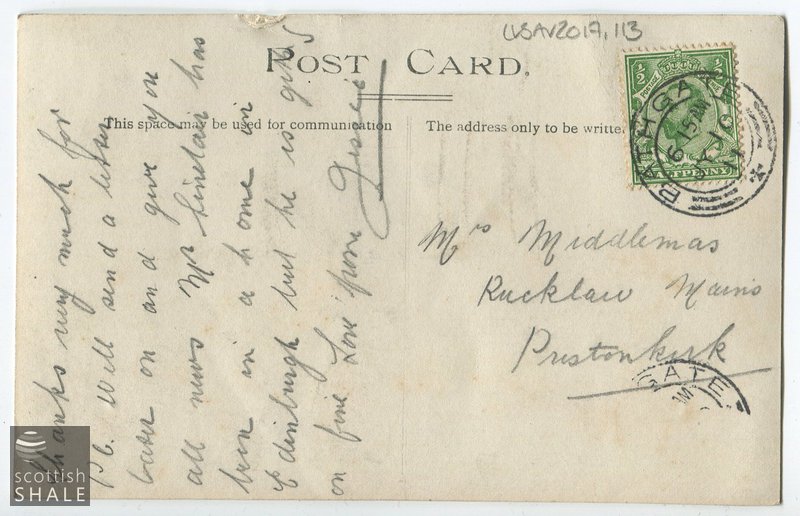 LVSAV2017.113
POST CARD.
This space may be used for communication
The address only to be written
Thanks very much for
P.C. Will send a letter
later on and give you
all news Mr Sinclair has
been in a home in
Edinburgh but he is going
on fine Love from Jessie
Mrs Middlemas
Rucklaw Mains
Prestonkirk
1/2 1/2
HALFPENNY
BATHGATE
6 15 AM
10
11
GATE
scottish
SHALE